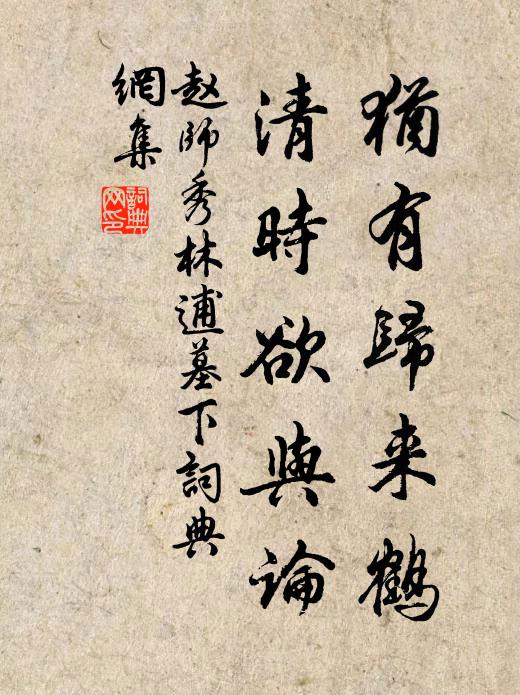 猶有歸来鶴
清時欲與論
赵師秀林逋墓下詞典
網集
詞典網印